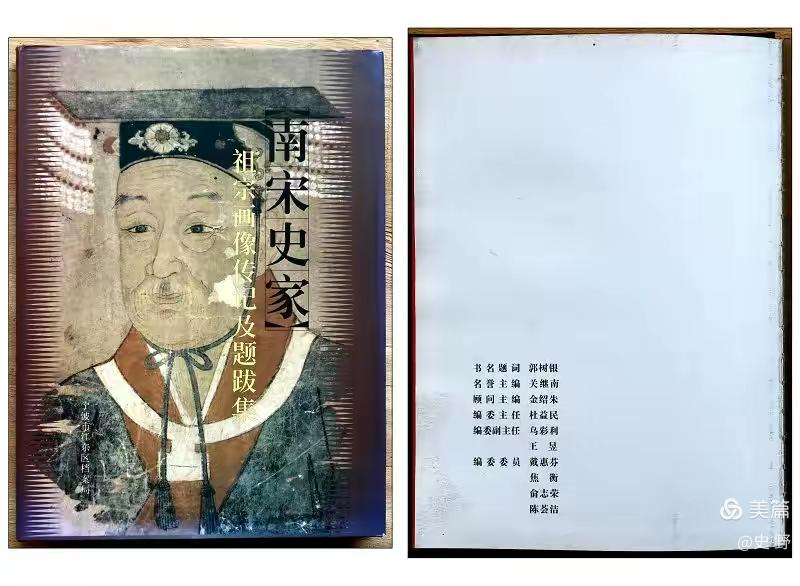 【南宋史家】
祖宗画像传记及题跋集
宁波市江东区档案局
书名题词 郭树银
名誉主编 关继南
顾问主编 金绍朱
编委主任 杜益民
编委副主任 乌彩利
王昱
编委委员 戴惠芬
焦衡
俞志荣
陈荟洁
美篇
@史野